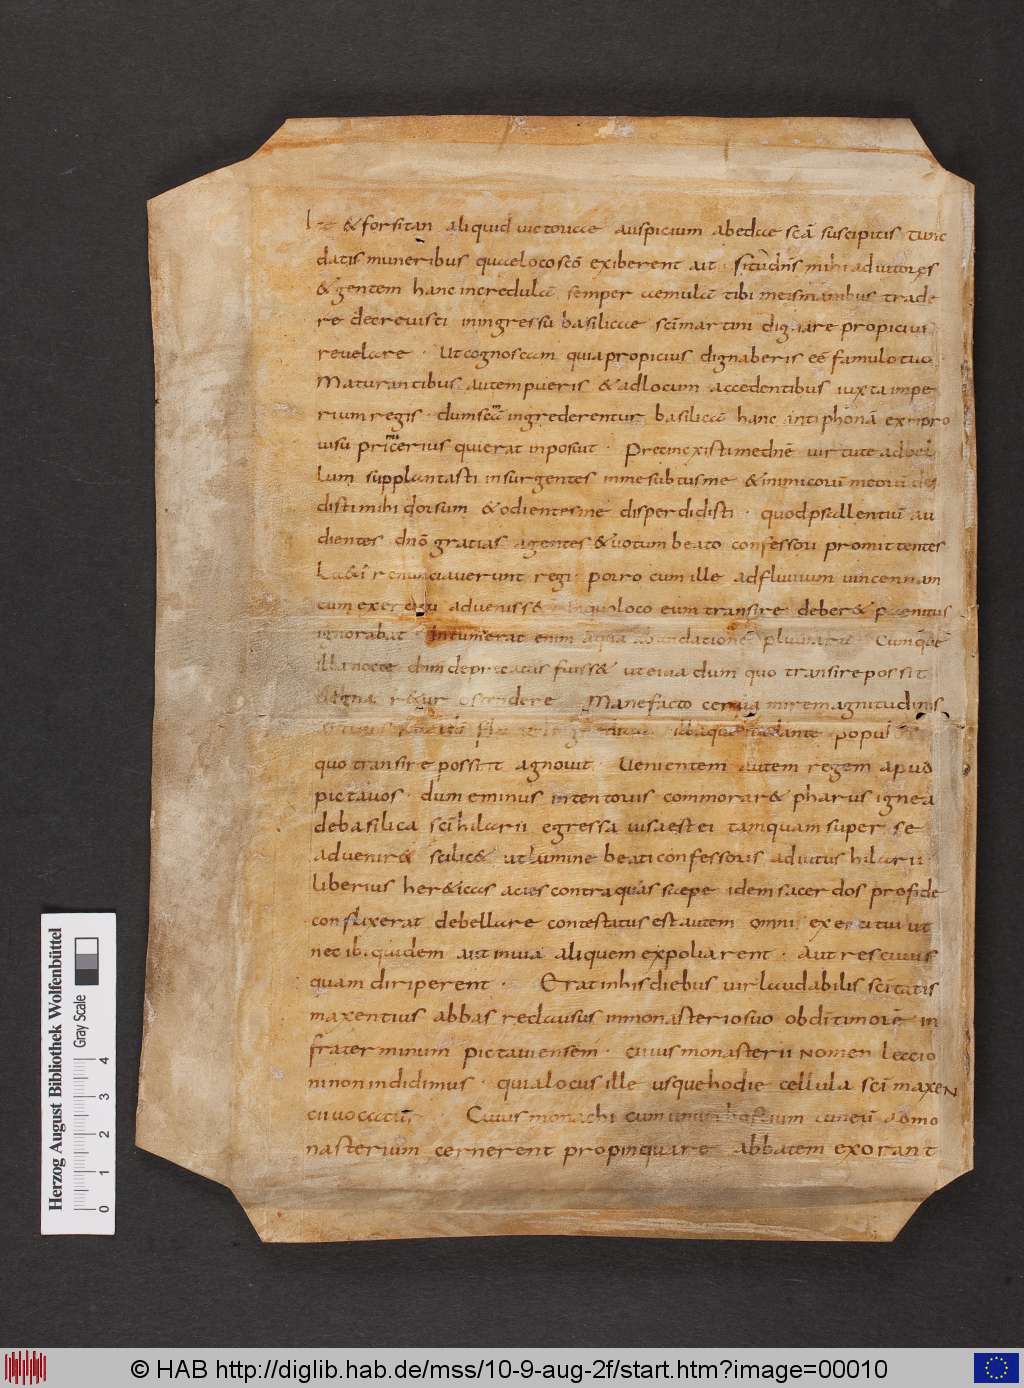 & forsitan aliquid victoriae auspicium ab aede scā suscipitis tunc
datis muneribus quae loco scō exiberent ait · si tu dn̄s mihi adiutor es
& gentem hanc incredulā semper aemulā tibi meis manibus trade
re decrevisti in ingressu basilicae sci martini dignare propicius
revelare · Ut cognoscam quia propicius dignaberis eē famulo tuo
Maturantibus autem pueris & ad locum accedentibus iuxta impe
rium regis · dum scām ingrederentur basilicā hanc antiphonā ex inpro
viso primicerius qui erat inposuit · Precinxisti me dnē virtute ad bel
lum supplantasti insurgentes in me subtus me & inimicorū meorū de
disti mihi dorsum & odientes me disperdidisti · quod psallentiū au
dientes dnō gratias agentes & votum beato confessori promittentes
renunciaverunt regi · porro cum ille ad fluvium vincennam
cum exercitu advenisset in quo loco eum transire deber& paenitus
ignorabat · Intumuerat enim aqua Cumque
illa nocte dnm deprecatus fuiss& ut ei vadum quo transire possit
ostendere Mane facto cerva mire magnitudinis
illaque vadante populus
quo transire possit agnovit · Venientem autem regem apud
pictavos · dum eminus in tentoriis commorar& pharus ignea
de basilica sci hilarii egressa visa est ei tamquam super se
advenir& scilic& ut lumine beati confessoris adiutus hilarii
liberius her&icas acies contra quas saepe idem sacerdos pro fide
conflixerat debellare contestatus est autem omni exercitui ut
nec ibi quidem aut in via aliquem expoliarent · aut res cuius
quam diriperent · Erat in his diebus vir laudabilis scitatis
maxentius abbas reclausus in monasterio suo ob dī timorē in
fra terminum pictaviensem · cuius monasterii nomen leccio
ni non indidimus · quia locus ille usque hodie cellula sci maxen
cii vocatur Cuius monachi cum unum hostium cuneū ad mo
nasterium cernerent propinquare abbatem exorant
Herzog August Bibliothek Wolfenbüttel
Gray Scale
0 1 2 3 4
© HAB http://diglib.hab.de/mss/10-9-aug-2f/start.htm?image=00010